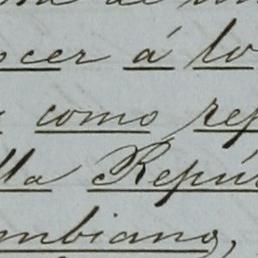 ocer á lo
como rep
lla Repú
mbiano,